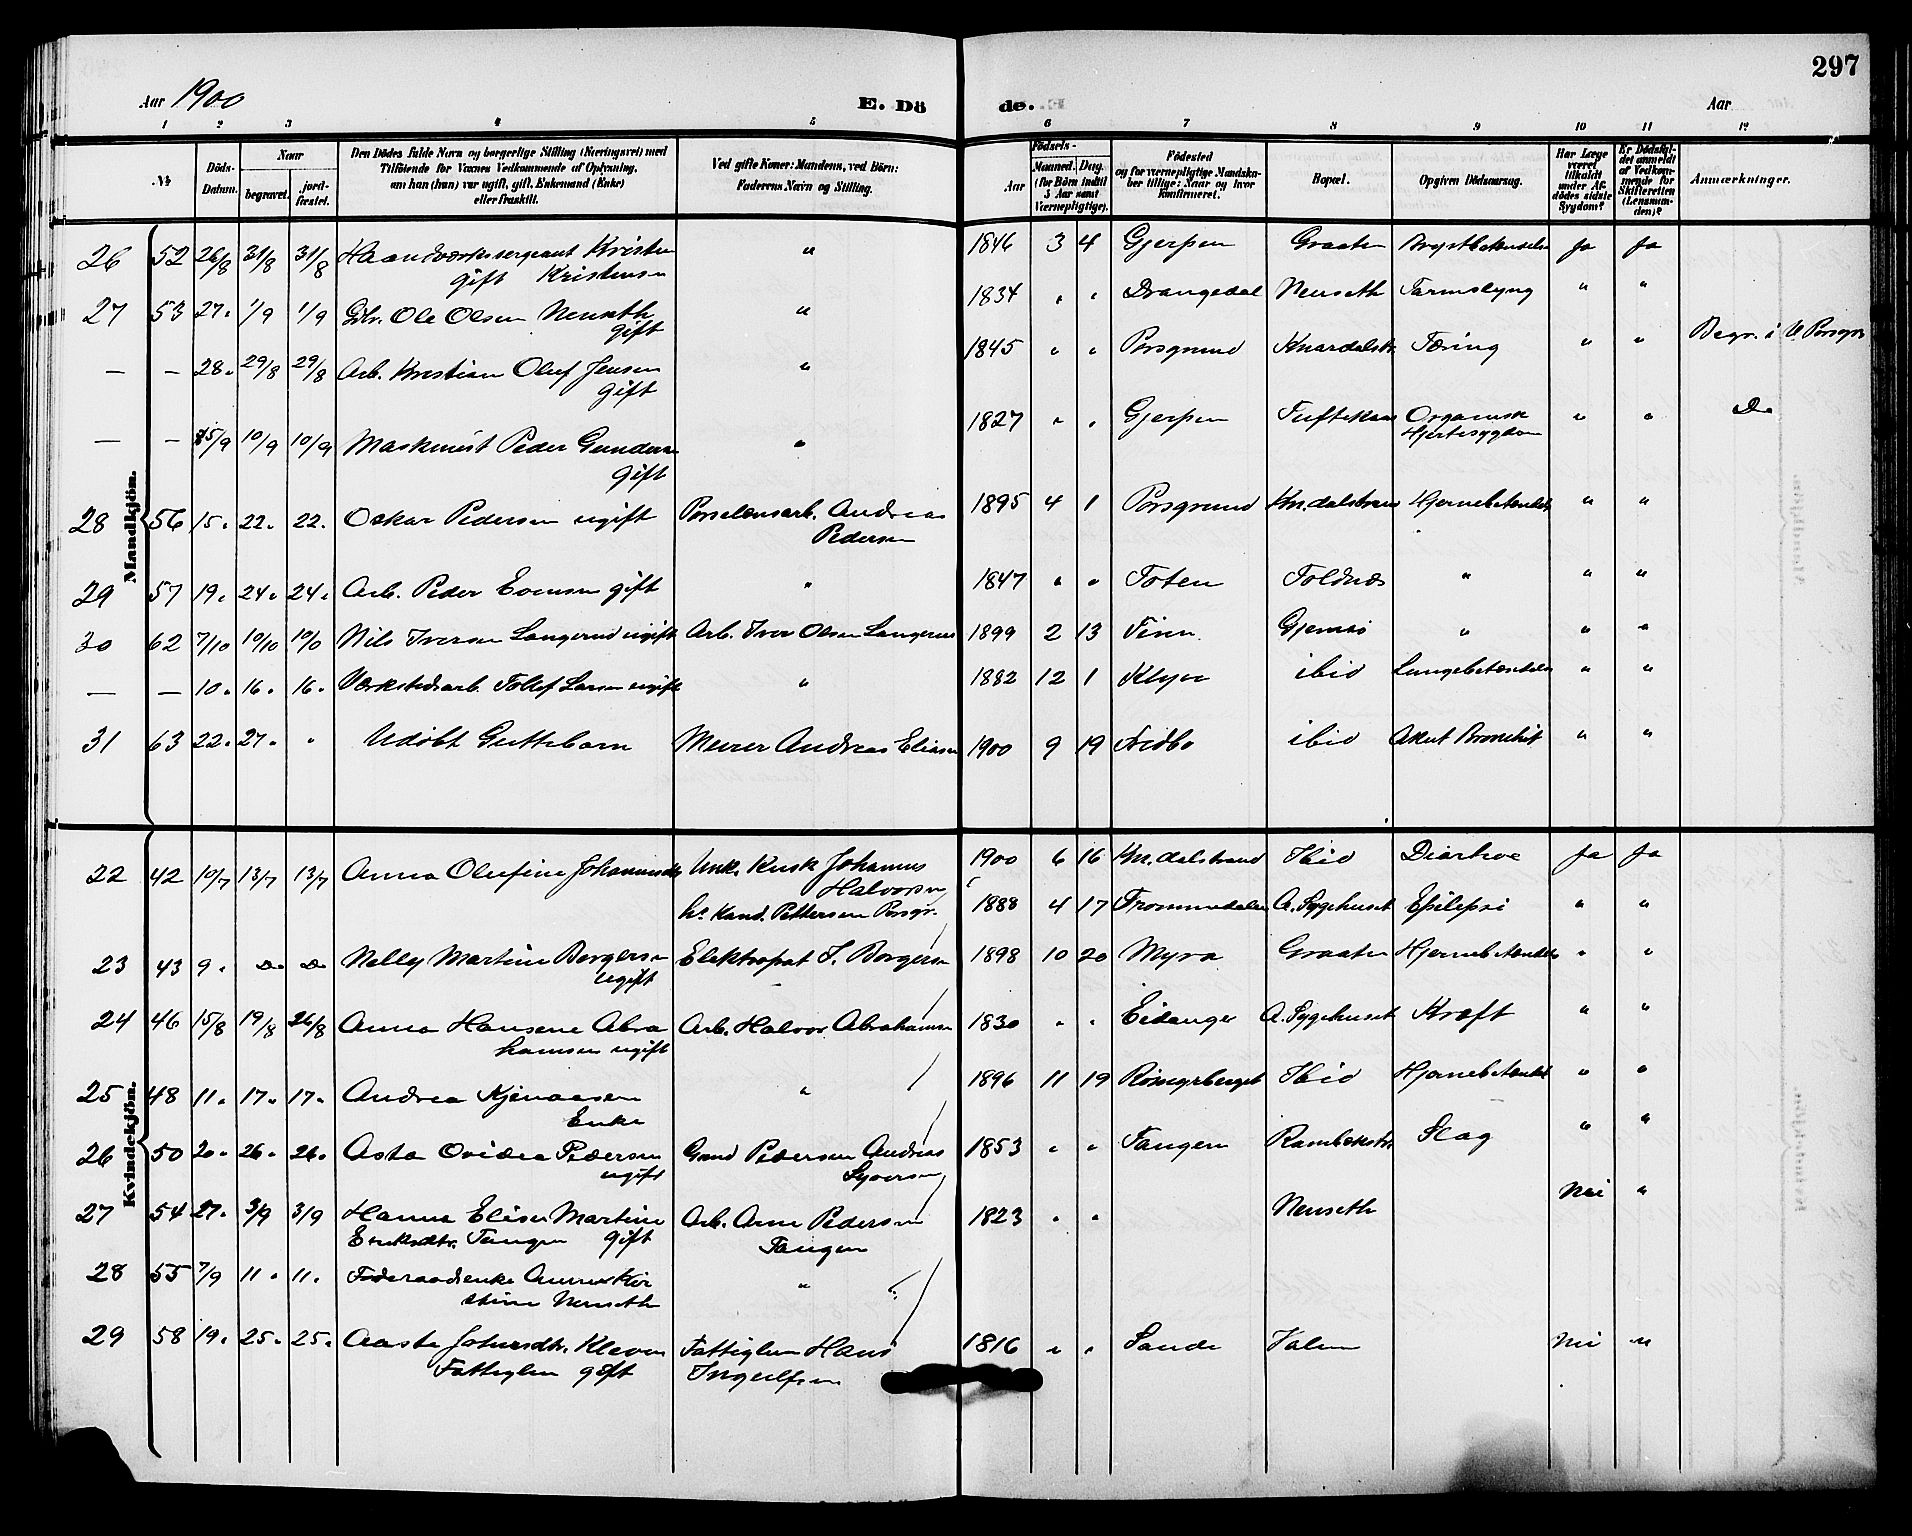 297
Aar 1900
E. Dö
de.
Aar
1 2 3 4 5 6 7 8 9 10 11 12
№
Döds-Datum.
Naar
begravet.
jord-fæstet.
Den Dödes fulde Navn og borgerlige Stilling (Næringsvei) med Tilföiende for Voxnes Vedkommende af Oplysning, om han (hun) var ugift, gift, Enkemand (Enke) eller fraskilt.
Ved gifte Koner: Mandens, ved Börn: Faderens Navn og Stilling.
Födsels-
Aar
Maaned. Dag.
(for Börn indtil 5 Aar samt Værnepligtige).
Födested og for værnepligtige Mandskaber tillige: Naar og hvor konfirmeret.
Bopæl.
Opgiven Dödsaarsag.
Har Læge været tilkaldt under Afdödes sidste Sygdom?
Er Dödsfaldet anmeldt af Vedkommende for Skifteretten (Lensmanden)?
Anmærkninger.
Mandkjön.
26 52 26/8 31/8 31/8 Haandværkssergeant Kristen " 1846 3 4 Gjerpen Graaten Brystbetændelse Ja Ja
gift Kristensen
27 53 27. 1/9 1/9 Gbr. Ole Olsen Nenseth " 1834 " " Drangedal Nenseth Tarmslyng " "
gift
— — 28. 29/8 29/8 Arb. Kristian Oluf Jensen " 1845 " " Porsgrund Knardalstr. Tæring " " Begr. i V. Porsgr.
gift
— — 5/9 10/9 10/9 Maskinist Peder Gundersen " 1827 " " Gjerpen Tuftekaas Organisk " " Do
gift Hjertesygdom
28 56 15. 22. 22. Oskar Pedersen ugift Porselænsarb. Andreas 1895 4 1 Porsgrund Kn.dalstrand Hjernebetændelse " "
Pedersen
29 57 19. 24. 24. Arb. Peder Evensen gift " 1847 " " Toten Foldnæs " " "
30 62 7/10 10/10 10/0 Nils Iversen Langerud ugift Arb. Iver Olsen Langerud 1899 2 13 Finn. Gjemsö " " "
— — 10. 16. 16. Værkstedsarb. Tollef Larsen ugift " 1882 12 1 Klyve ibid Lungebetændelse " "
31 63 22. 27. " Udöbt Guttebarn Murer Andreas Eliasen 1900 9 19 ibid Akut Bronchit " "
Kvindekjön.
22 42 10/7 13/7 13/7 Anna Olufine Johannesdtr. Unk. Kusk Johannes 1900 6 16 Kn.dalstrand Ibid Diarhoe Ja Ja
Halvorsen
hs Kand. Pettersen Porsgr. 1888 4 17 Frommedalen A. Sygehuset Epilepsi " "
23 43 9. Do Do Nelly Martine Borgersen Elektropat J. Borgersen 1898 10 20 Myra Graaten Hjernebetændelse " "
ugift
24 46 15/8 19/8 26/8 Anna Hansene Abra Arb. Halvor Abrahamsen 1830 " " Eidanger A. Sygehuset Kræft " "
hamsen ugift
25 48 11. 17. 17. Andrea Kjenaasen " 1896 11 19 Ibid Hjernebetændel " "
Enke
26 50 20. 26. 26. Asta Ovidea Pedersen Pedersen Andreas 1853 " " Tangen Rambekstr. Slag " "
ugift Syversen
27 54 27. 3/9 3/9 Hanna Elise Martine Arb. Arne Pedersen 1823 " " Nenseth Nei "
Eriksdtr. Tangen gift Tangen
28 55 7/9 11. 11. Föderaadsenke Anne Kir "
stine Nenseth
29 58 19. 25. 25. Aaste Johnsdtr. Kleven Fattiglem Hans 1816 " " Sande Valen Nei "
Fattiglem gift Ingulfsen